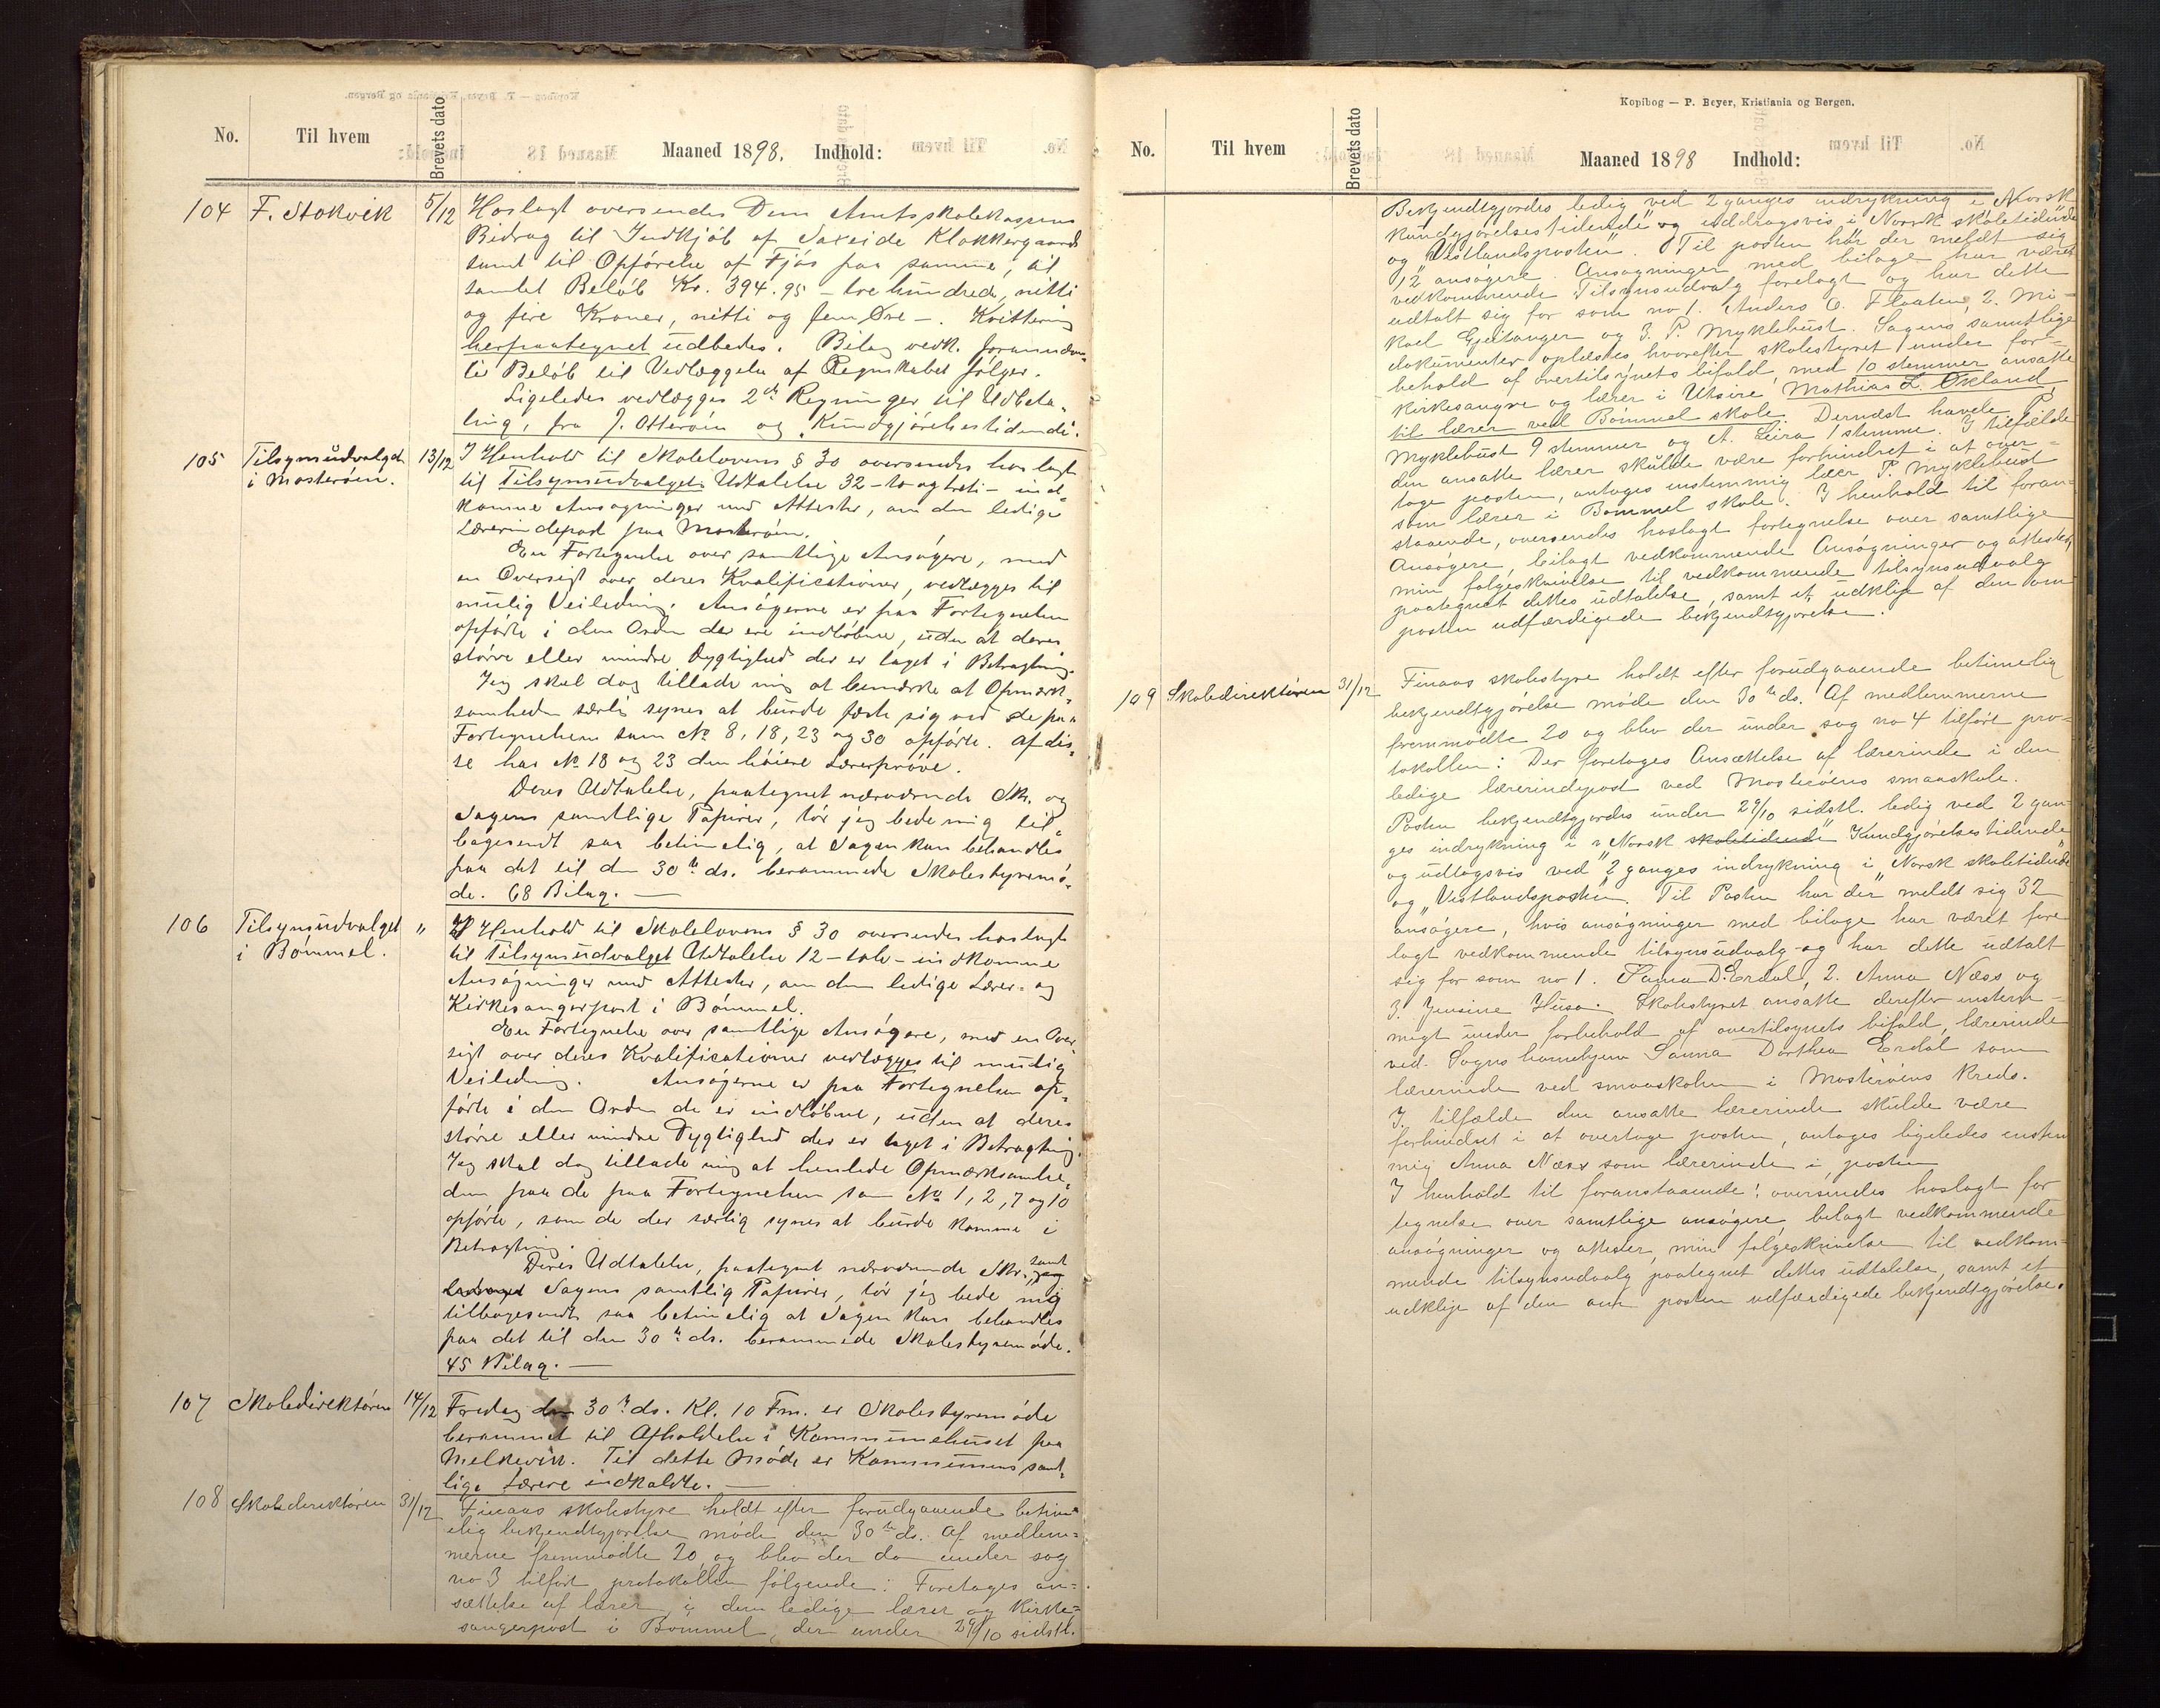 No. Til hvem Brevets dato Maaned 1898. Indhold:
104 F. Stokvik 5/12 Hoslagt oversendes Dem Amtsskolekassens
Bidrag til Indkjøb af Saxeide Klokkergaard
samt til Opførelse af Fjøs paa samme, til
samlet Beløb Kr. 394.95 – tre hundrede, nitti
og fire Kroner, nitti og fem Øre –. Kvittering
herpaategnet udbedes. Bilag vedk. forannævn-
te Beløb til Vedlæggelse af Regnskabet følger.
Ligeledes vedlægges 2de Regninger til Udbeta-
ling, fra J. Otterøen og „Kundgjørelsestidende“.
105 Tilsynsudvalget i Mosterøen. 13/12 I Henhold til Skolelovens § 30 oversendes hoslagt
til Tilsynsudvalgets Udtalelse 32 – to og treti – ind-
komne Ansøgninger med Attester, om den ledige
Lærerindepost paa Mosterøen.
En Fortegnelse over samtlige Ansøgere, med
en Oversigt over deres Kvalifikationer, vedlægges til
mulig Veiledning. Ansøgerne er paa Fortegnelsen
opførte i den Orden de ere indløbne, uden at deres
større eller mindre Dygtighed der er taget i Betragtning.
Jeg skal dog tillade mig at bemærke at Opmærk-
somheden særlig synes at burde fæste sig ved de paa
Fortegnelsen som No 8, 18, 23 og 30 opførte. Af dis-
se har No 18 og 23 den høiere Lærerprøve.
Deres Udtalelse, paategnet nærværende Skr. og
Sagens samtlige Papirer, tør jeg bede mig til-
bagesendt saa betimelig, at Sagen kan behandles
paa det til den 30te ds. berammede Skolestyremø-
de. 68 Bilag. —
106 Tilsynsudvalget i Bømmel. „ I Henhold til Skolelovens § 30 oversendes hoslagt
til Tilsynsudvalget Udtalelse 12 – tolv – indkomne
Ansøgninger med Attester, om den ledige Lærer- og
Kirkesangerpost i Bømmel.
En Fortegnelse over samtlige Ansøgere, med en Over-
sigt over deres Kvalificationer vedlægges til mulig
Veiledning. Ansøgerne er paa Fortegnelsen op-
førte i den Orden de er indløbne, uden at deres
større eller mindre Dygtighed der er taget i Betragtning.
Jeg skal dog tillade mig at henlede Opmærksomhe-
den paa de paa Fortegnelsen som No 1, 2, 7 og 10
opførte, som de der særlig synes at burde komme i
Betragtning.
Deres Udtalelse, paategnet nærværende Skr. samt
Sagens samtlig Papirer, tør jeg bede mig
tilbagesendt saa betimelig at Sagen kan behandles
paa det til den 30te ds. berammede Skolestyremøde.
45 Bilag. —
107 Skoledirektøren 14/12 Fredag den 30te ds. Kl. 10 Fm. er Skolestyremøde
berammet til Afholdelse i Kommunehuset paa
Melkevik. Til dette Møde er Kommunens samt-
lige Lærere indkaldte. —
108 Skoledirektøren 31/12 Finaas skolestyre holdt efter forudgaaende betim-
elig bekjendtgjørelse møde den 30te ds. Af medlem-
merne fremmødte 20 og blev der da under sag
no 3 tilført protokollen følgende: Foretages an-
sættelse af lærer i den ledige lærer og Kirke-
sangerpost i Bømmel, der under 29/10 sidstl.
Kopibog — P. Beyer, Kristiania og Bergen.
No. Til hvem Brevets dato Maaned 1898 Indhold:
Bekjendtgjordes ledig ved 2 ganges indrykning i „Norsk
kundgjørelsestidende“ og uddragsvis i „Norsk skoletidende“
og „Vestlandsposten“. Til posten har der meldt sig
12 ansøgere. Ansøgninger med bilage har været
vedkommende Tilsynsudvalg forelagt og har dette
udtalt sig for som no 1. Anders O. Flaaten, 2. Mi-
kael Gjeltanger og 3. P. Myklebust. Sagens samtlige
dokumenter oplæstes hvorefter skolestyret under for-
behold af overtilsynets bifald, med 10 stemmer ansatte
kirkesanger og lærer i Utsire, Mathias L. Økland
til lærer ved Bømmel skole. Dernæst havde P.
Myklebust 9 stemmer og A. Leira 1 stemme. I tilfælde
den ansatte lærer skulde være forhindret i at over-
tage posten, antages enstemmig lærer P. Myklebust
som lærer i Bømmel skole. I henhold til foran-
staaende, oversendes hoslagt fortegnelse over samtlige
Ansøgere, bilagt vedkommende Ansøgninger og attester,
min følgeskrivelse til vedkommende tilsynsudvalg
paategnet dettes udtalelse, samt et udklip af den om
posten udfærdigede bekjendtgjørelse.
109 Skoledirektøren 31/12 Finaas skolestyre holdt efter forudgaaende betimelig
bekjendtgjørelse møde den 30te ds. Af medlemmerne
fremmødte 20 og blev der under sag no 4 tilført pro-
tokollen: Der foretages Ansættelse af lærerinde i den
ledige lærerindepost ved Mosterøens smaaskole.
Posten bekjendtgjordes under 29/10 sidstl. ledig ved 2 gan-
ges indrykning i „Norsk skoletidende“ Kundgjørelsestidende
og udtogsvis ved 2 ganges indrykning i „Norsk skoletidende“
og „Vestlandsposten“. Til Posten har der meldt sig 32
ansøgere, hvis ansøgninger med bilage har været fore
lagt vedkommende tilsynsudvalg og har dette udtalt
sig for som no 1. Sanna D. Erdal, 2. Anna Næss og
3. Jensine Husa. Skolestyret ansatte derefter enstem-
migt under forbehold af overtilsynets bifald, lærerinde
ved Sogns barnehjem Sanna Dorthea Erdal som
lærerinde ved smaaskolen i Mosterøens Kreds.
I tilfælde den ansatte lærerinde skulde være
forhindret i at overtage posten, antages ligeledes enstem
mig Anna Næss som lærerinde i posten
I henhold til foranstaaende: oversendes hoslagt for
tegnelse over samtlige ansøgere, bilagt vedkommende
ansøgninger og attester, min følgeskrivelse til vedkom-
mende tilsynsudvalg paategnet dettes udtalelse, samt et
udklip af den om posten udfærdigede bekjendtgjørelse.